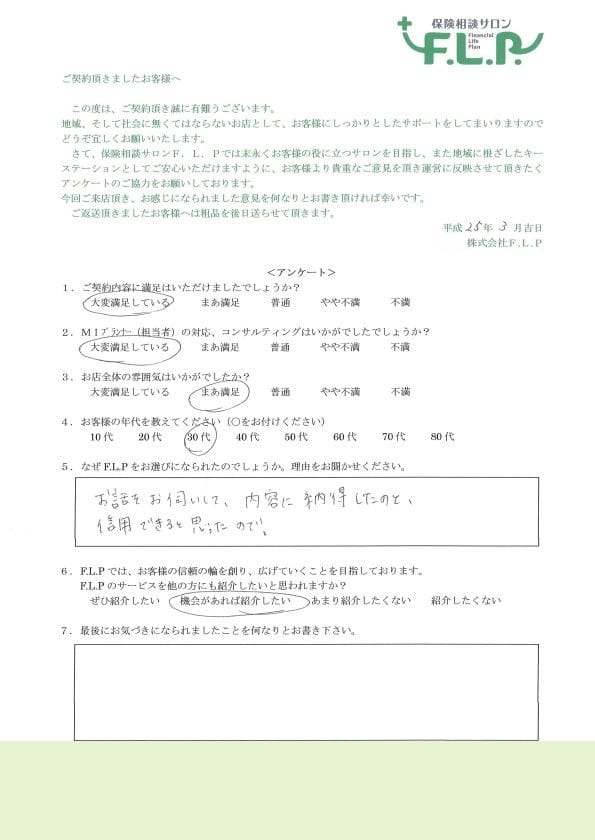 保険相談サロン
F.L.P.
Financial
Life
Plan
ご契約頂きましたお客様へ
この度は、ご契約頂き誠に有難うございます。
地域、そして社会に無くてはならないお店として、お客様にしっかりとしたサポートをしてまいりますので
どうぞ宜しくお願いいたします。
さて、保険相談サロンＦ．Ｌ．Ｐでは末永くお客様の役に立つサロンを目指し、また地域に根ざしたキー
ステーションとしてご安心いただけますように、お客様より貴重なご意見を頂き運営に反映させて頂きたく
アンケートのご協力をお願いしております。
今回ご来店頂き、お感じになられました意見を何なりとお書き頂ければ幸いです。
ご返送頂きましたお客様へは粗品を後日送らせて頂きます。
平成 25年 3 月吉日
株式会社Ｆ.Ｌ.Ｐ
＜アンケート＞
１．ご契約内容に満足はいただけましたでしょうか？
大変満足している まあ満足 普通 やや不満 不満
２．ＭＩﾌﾟﾗﾝﾅｰ（担当者）の対応、コンサルティングはいかがでしたでしょうか？
大変満足している まあ満足 普通 やや不満 不満
３．お店全体の雰囲気はいかがでしたか？
大変満足している まあ満足 普通 やや不満 不満
４．お客様の年代を教えてください（○をお付けください）
10代 20代 30代 40代 50代 60代 70代 80代
５．なぜF.L.Pをお選びになられたのでしょうか。理由をお聞かせください。
お話をお伺いして、内容に納得したのと、
信用できると思ったので。
６．F.L.Pでは、お客様の信頼の輪を創り、広げていくことを目指しております。
F.L.Pのサービスを他の方にも紹介したいと思われますか？
ぜひ紹介したい 機会があれば紹介したい あまり紹介したくない 紹介したくない
７．最後にお気づきになられましたことを何なりとお書き下さい。